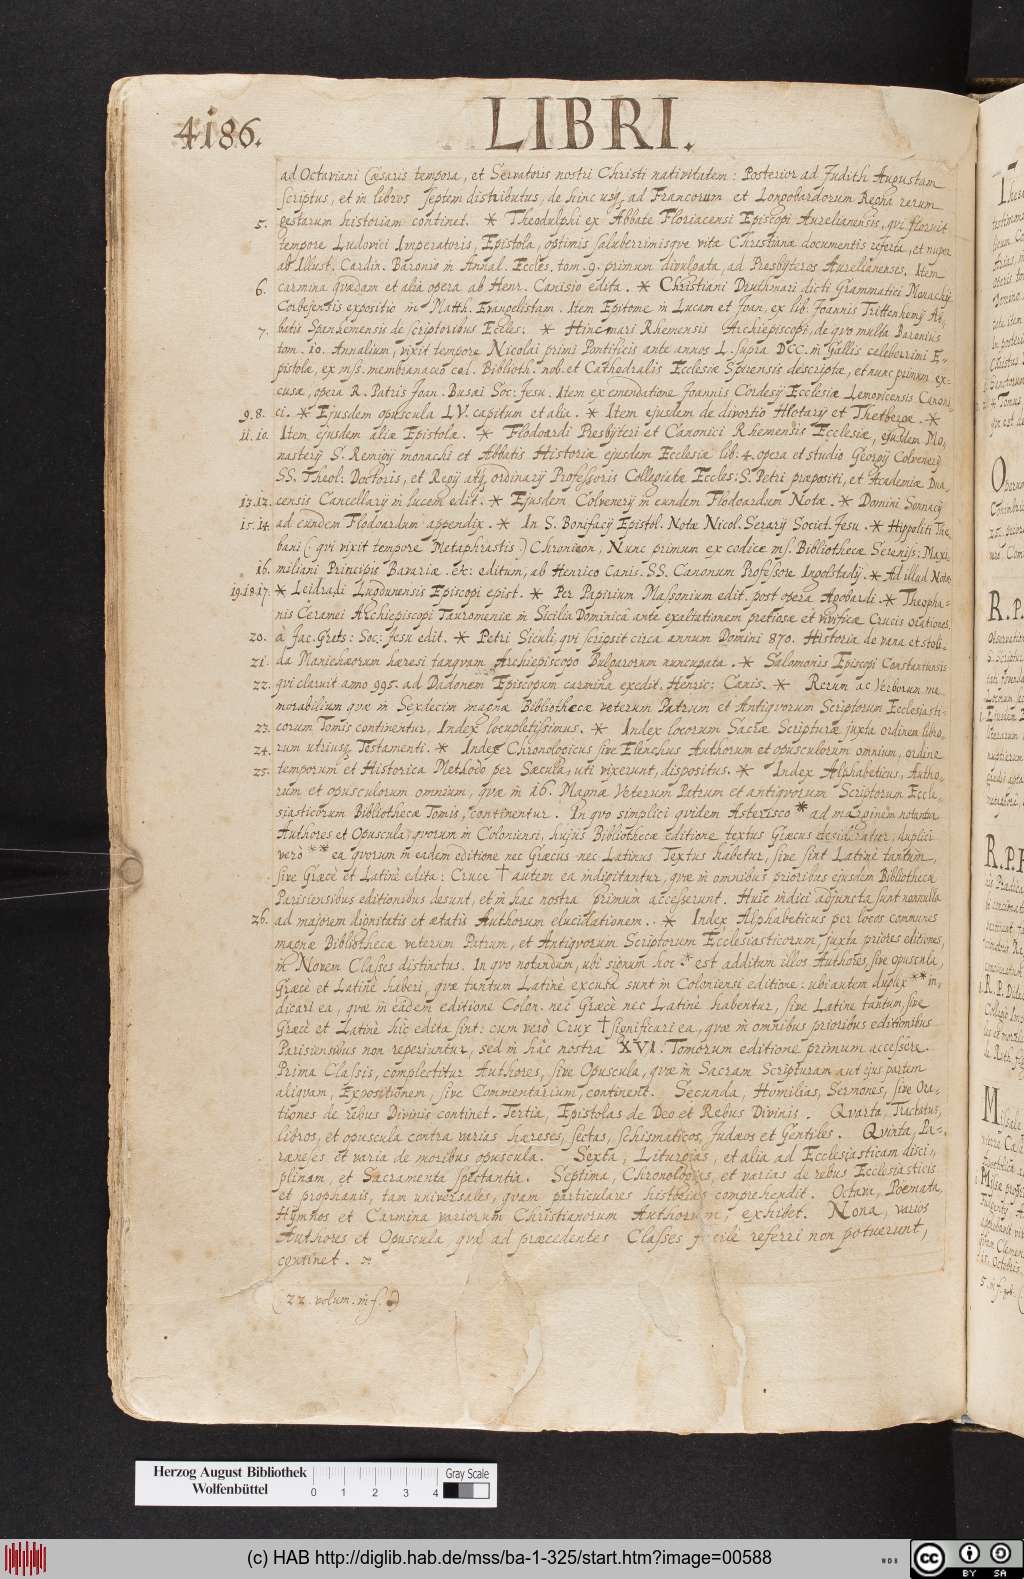 4186.
LIBRI.
ad Octaviani Cæsaris tempora, et Servatoris nostri Christi nativitatem: Posterior ad Judith Augustam
scriptus, et in libros septem distributus, de hinc usq, ad Francorum et Longobardorum Regna rerum
5. gestarum historiam continet. * Theodulphi ex Abbate Floriacensi Episcopi Aurelianensis, qui floruit
tempore Ludovici Imperatoris, Epistola, optimis saluberrimisque vitæ Christianæ documentis referta, et nuper
ab Illust. Cardin. Baronio in Annal. Eccles. tom. 9. primum divulgata, ad Presbyteros Aurelianenses. Item
6. carmina quædam et alia opera ab Henr. Canisio edita. * Christiani Druthmari dicti Grammatici Monachij
Corbefensis expositio in Matth. Evangelistam. Item Epitome in Lucam et Joan. ex lib. Joannis Trittenhemij Ab,
7. batis Spanhemensis de scriptoribus Eccles: * Hincmari Rhemensis Archiepiscopi, de quo multa Baronius
tom. 10. Annalium, vixit tempore Nicolai primi Pontificis ante annos L. supra DCC. in Gallis celeberrimi E-
pistolæ, ex m/s. membranaceo cod. Biblioth. nob. et Cathedralis Ecclesiæ Spirensis descriptæ, et nunc primum ex-
cusæ, opera R. Patris Joan. Busæi Soc: Jesu. Item ex emendatione Joannis Cordesij Ecclesiæ Lemovicensis Canoni
9. 8. ci. * Ejusdem opuscula LV. capitum et alia. * Item ejusdem de divortio Hlotarij et Thetbergæ. *
11. 10. Item ejusdem aliæ Epistolæ. * Flodoardi Presbyteri et Canonici Rhemensis Ecclesiæ, ejusdem Mo,
nasterij S. Remigij monachi et Abbatis Historiæ ejusdem Ecclesiæ lib: 4. opera et studio Georgij Colvenerij
SS. Theol: Doctoris, et Regij atq, ordinarij Professoris Collegiatæ Eccles: S. Petri præpositi, et Academiæ Dua,
13. 12. censis Cancellarij in lucem edit. * Ejusdem Colvenerij in eundem Flodoardum Notæ. * Domini Sonnacij
15. 14. ad eundem Flodoardum appendix. * In S. Bonifacij Epistol. Notæ Nicol. Serarij Societ. Jesu. * Hippoliti The,
bani (: qui vixit tempore Metaphrastis:) Chronicon, Nunc primum ex codice ms. Bibliothecæ Sereniss: Maxi,
16. miliani Principis Bavariæ. etc: editum, ab Henrico Canis. SS. Canonum Professore Ingolstadij. * Ad illud Notæ.
19. 18. 17. * Leidradi Lugdunensis Episcopi epist. * Per Papirium Massonium edit. post opera Agobardi. * Theopha-
nis Ceramei Archiepiscopi Tauromeniæ in Sicilia Dominicâ ante exaltationem pretiosæ et vivificæ Crucis orationes,
20. à Jac. Grets: Soc: Jesu edit. * Petri Siculi, qui scripsit circa annum Domini 870. Historia de vana et stoli-
21. da Manichæorum hæresi tanquam Archiepiscopo Bulgarorum nuncupata. * Salomonis Episcopi Constantiensis
22. qui claruit anno 995. ad Dadonem Episcopum carmina excdit. Henric: Canis. * Rerum ac Verborum me
morabilium quæ in Sexdecim magnæ Bibliothecæ veterum Patrum et Antiquorum Scriptorum Ecclesiasti-
23. corum Tomis continentur, Index locupletissimus. * Index locorum Sacræ Scripturæ juxta ordinem libro,
24. rum utriusq, Testamenti. * Index Chronologicus sive Elenchus Authorum et opusculorum omnium, ordine
25. temporum et Historica Methodo per Sæcula, uti vixerunt, dispositus. * Index Alphabeticus, Autho-
rum et opusculorum omnium, quæ in 16. Magnæ Veterum Patrum et antiquorum Scriptorum Eccle-
siasticorum Bibliothecæ Tomis, continentur. In quo simplici quidem Asterisco * ad marginem notantur
Authores et Opuscula, quorum in Coloniensi, hujus Bibliothecæ editione textus Græcus desideratur, duplici
verò ** ea quorum in eadem editione nec Græcus nec Latinus Textus habetur, sive sint Latinè tantum,
sive Græcè et Latinè edita: Cruce † autem ea indigitantur, quæ in omnibus prioribus ejusdem Bibliothecæ
Parisiensibus editionibus desunt, et in hac nostra primùm accesserunt. Huic indici adjuncta sunt nonnulla
26. ad majorem dignitatis et ætatis Authorum elucidationem. * Index Alphabeticus per locos communes
magnæ Bibliothecæ veterum Patrum, et Antiquorum Scriptorum Ecclesiasticorum, juxta priores editiones,
in Novem Classes distinctus. In quo notandum, ubi signum hoc * est additum illos Authores sive opuscula,
Græcè et Latinè haberi, quæ tantum Latine excusa sunt in Coloniensi editione: ubi autem duplex ** in,
dicari ea, quæ in eadem editione Colon. nec Græcè nec Latinè habentur, sive Latine tantum, sive
Græcè et Latinè hic edita sint: cum verò Crux † significari ea, quæ in omnibus prioribus editionibus
Parisiensibus non reperiuntur, sed in hâc nostra XVI. Tomorum editione primum accessere.
Prima Classis, complectitur Authores, sive Opuscula, quæ in Sacram Scripturam aut ejus partem
aliquam, Expositionem, sive Commentarium, continent. Secunda, Homilias, Sermones, sive Ora-
tiones de rebus Divinis continet. Tertia, Epistolas de Deo et Rebus Divinis. Quarta, Tractatus,
libros, et opuscula contra varias hæreses, sectas, schismaticos, Judæos et Gentiles. Quinta, Pa-
ræneses et varia de moribus opuscula. Sexta, Liturgias, et alia ad Ecclesiasticam disci,
plinam, et Sacramenta spectantia. Septima, Chronologias, et varias de rebus Ecclesiasticis
et prophanis, tam universales, quam particulares historias comprehendit. Octava, Poëmata,
Hymnos et Carmina variorum Christianorum Authorum, exhibet. Nona, varios
Authores et Opuscula quæ ad præcedentes Classes facile referri non potuerunt,
continet.
(: 22. volum. in f. :)
Herzog August Bibliothek
Wolfenbüttel
0 1 2 3 4
Gray Scale
(c) HAB http://diglib.hab.de/mss/ba-1-325/start.htm?image=00588
WDB
CC BY SA